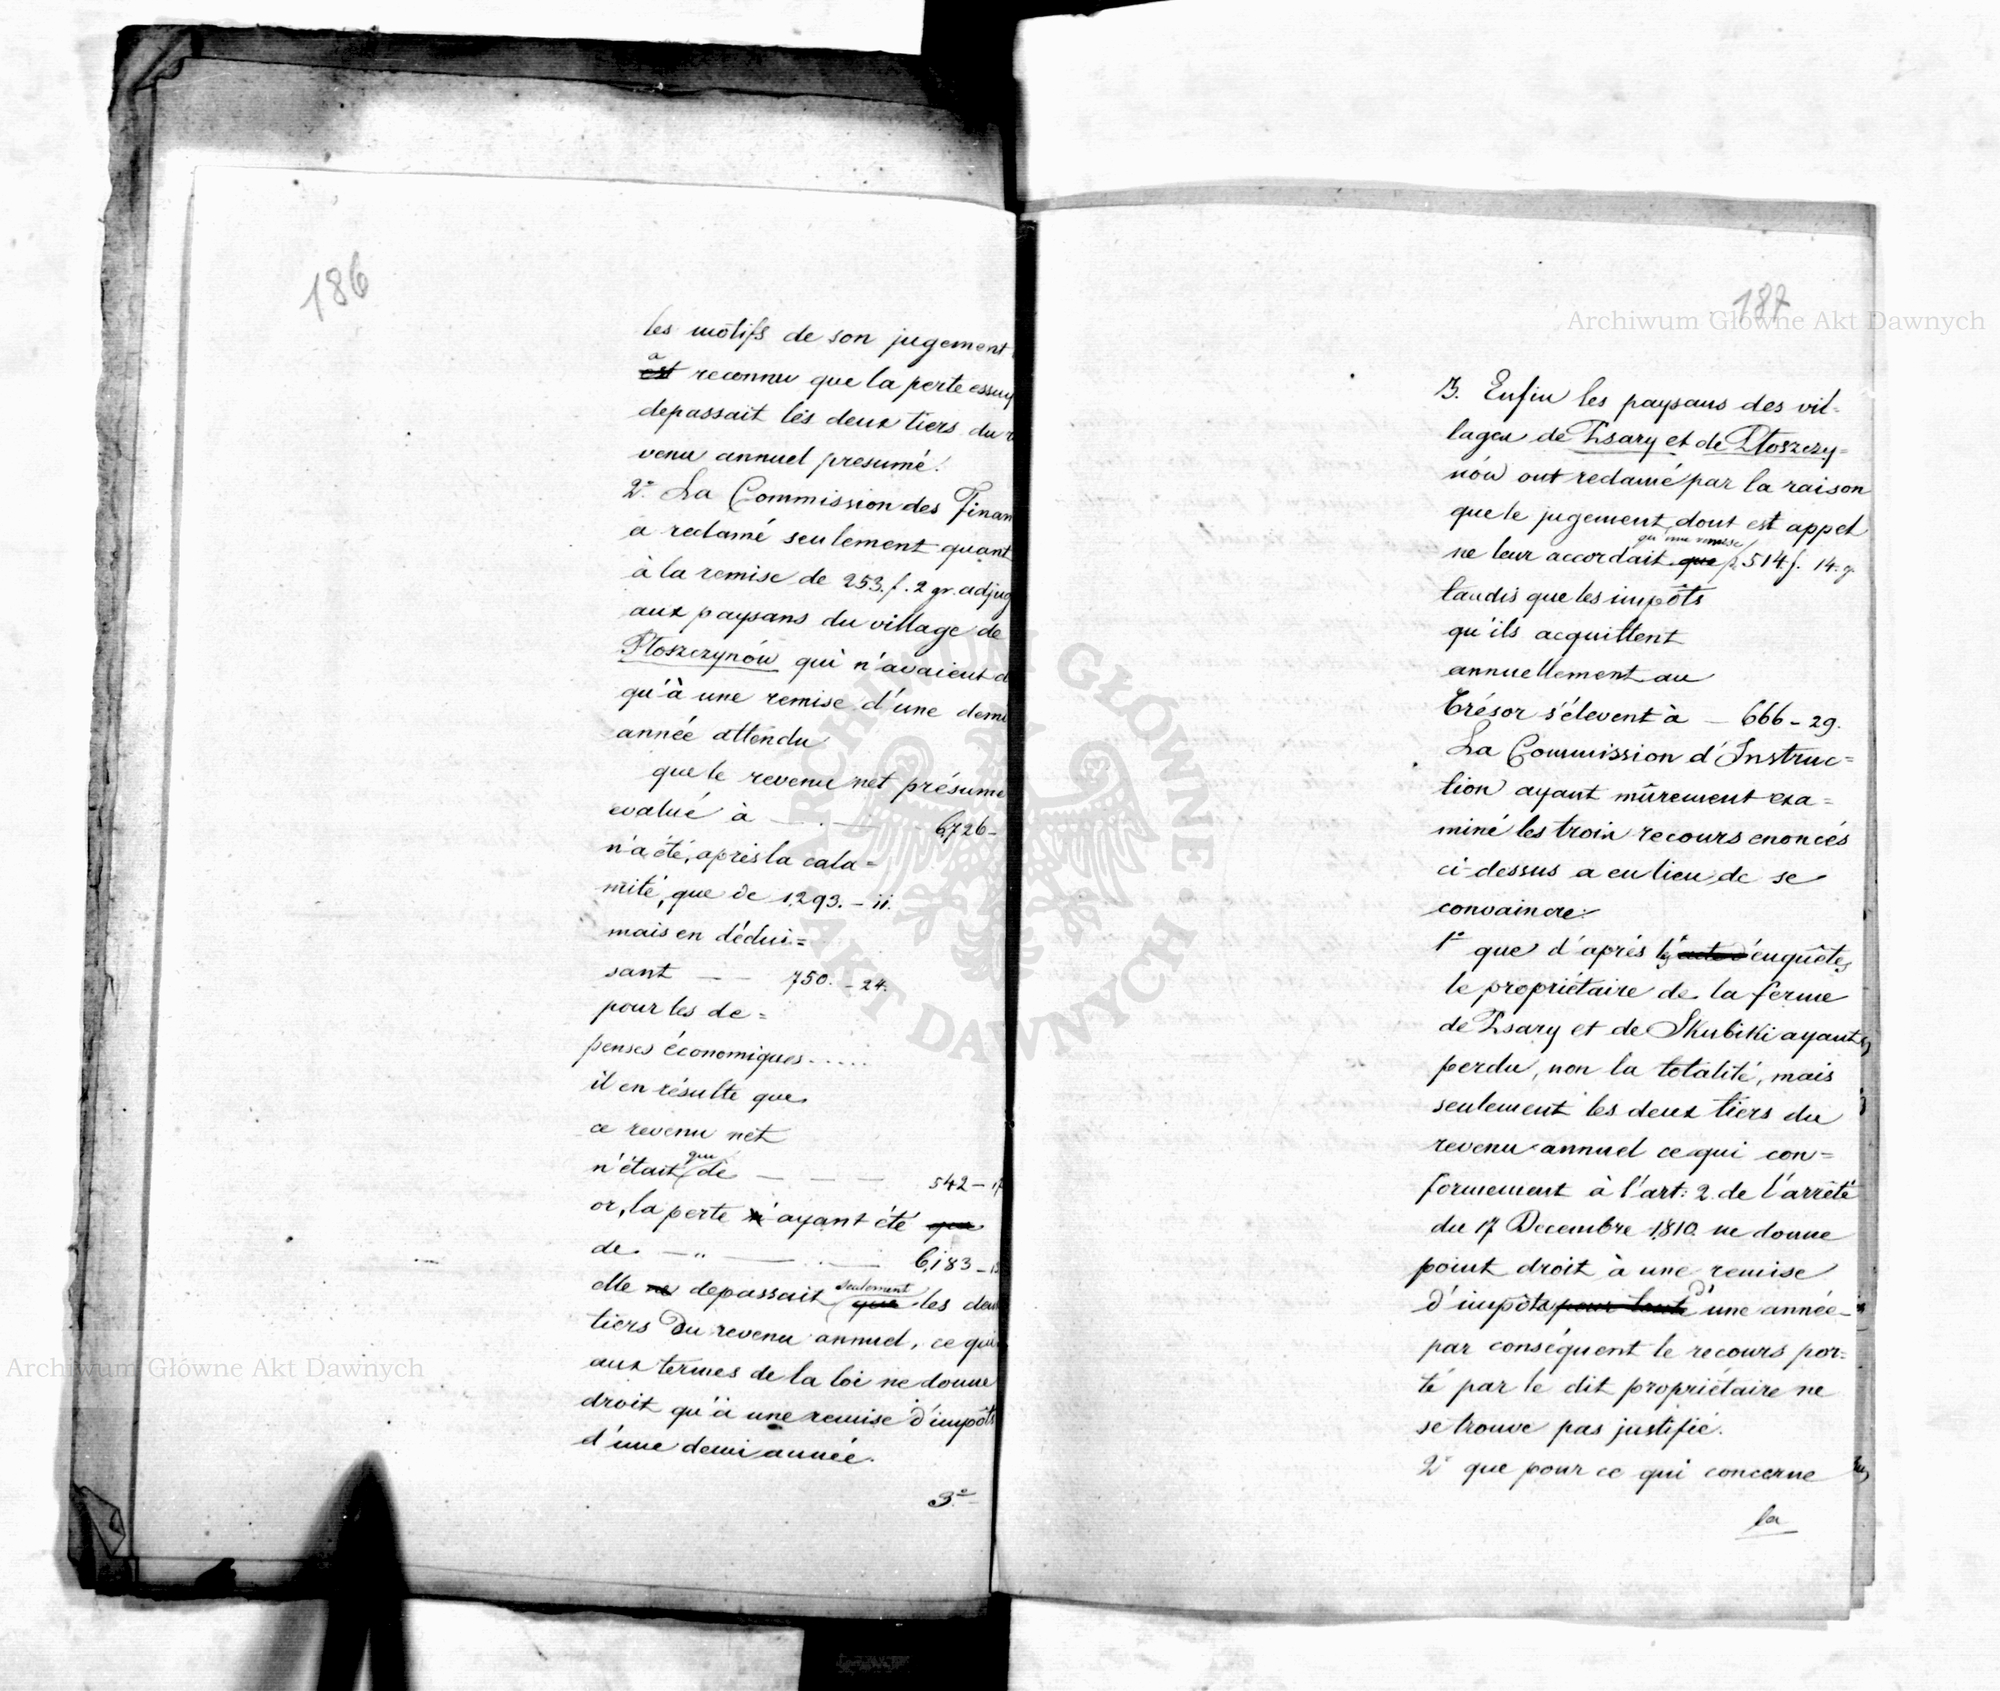 186
les motifs de son jugement
a
est reconnu que la perte essuy
depassait les deux tiers du r
venu annuel presumé.
2° La Commission des Finan
a reclamé seulement quant
à la remise de 253. f. 2 gr. adjug
aux paysans du village de
Płoszczynów qui n'avaient d
qu'à une remise d'une demi
année attendu
que le revenu net présumé
evalué à — . — 6,726 –
n'a été, après la cala=
mité, que de 1,293. – 11.
mais en dédui=
sant — — 750. – 24.
pour les de=
penses économiques.....
il en résulte que
ce revenu net
que
n'était de — — — 542 – 17
or, la perte n'ayant été que
de — „ — . — 6,183 – 13
seulement
elle ne depassait que les deux
tiers du revenu annuel, ce qui
aux termes de la loi ne donne
droit qu'à une remise d'impôts
d'une demi année.
3°
187
3. Enfin les paysans des vil=
lages de Psary et de Płoszczy=
nów ont reclamé par la raison
que le jugement dont est appel
qu'une remise
ne leur accordait que p. 514 f. 14. g.
tandis que les impôts
qu'ils acquittent
annuellement au
Trésor s'élevent à — 666 – 29.
La Commission d'Instruc=
tion ayant mûrement exa=
miné les trois recours enoncés
ci-dessus a eu lieu de se
convaincre:
1° que d'après les acte d'enquêtes
le propriétaire de la ferme
de Psary et de Skubiki ayant
perdu, non la totalité, mais
seulement les deux tiers du
revenu annuel ce qui con=
formement à l'art: 2. de l'arrêté
du 17 Decembre 1810. ne donne
point droit à une remise
d'impôts pour toute d'une année –
par conséquent le recours por=
té par le dit propriétaire ne
se trouve pas justifié.
2° que pour ce qui concerne
la
Archiwum Główne Akt Dawnych
Archiwum Główne Akt Dawnych
ARCHIWUM GŁÓWNE AKT DAWNYCH